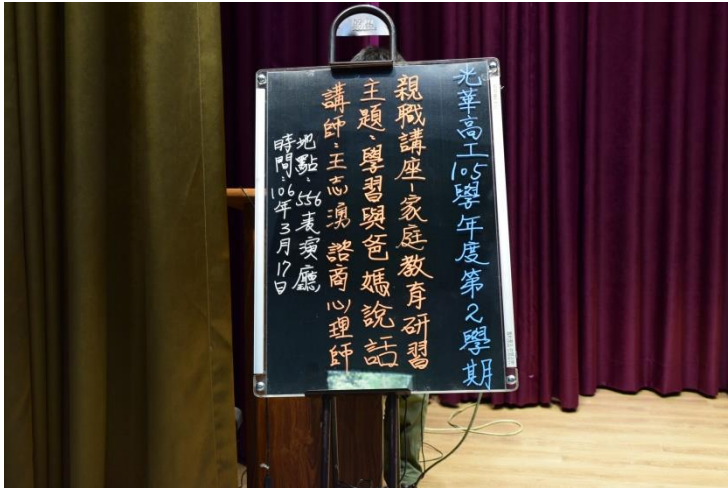 光華高工105學年度第2學期
親職講座-家庭教育研習
主題:學習與爸媽說話
講師:王志湧 諮商心理師
地點:556表演廳
時間:106年3月17日